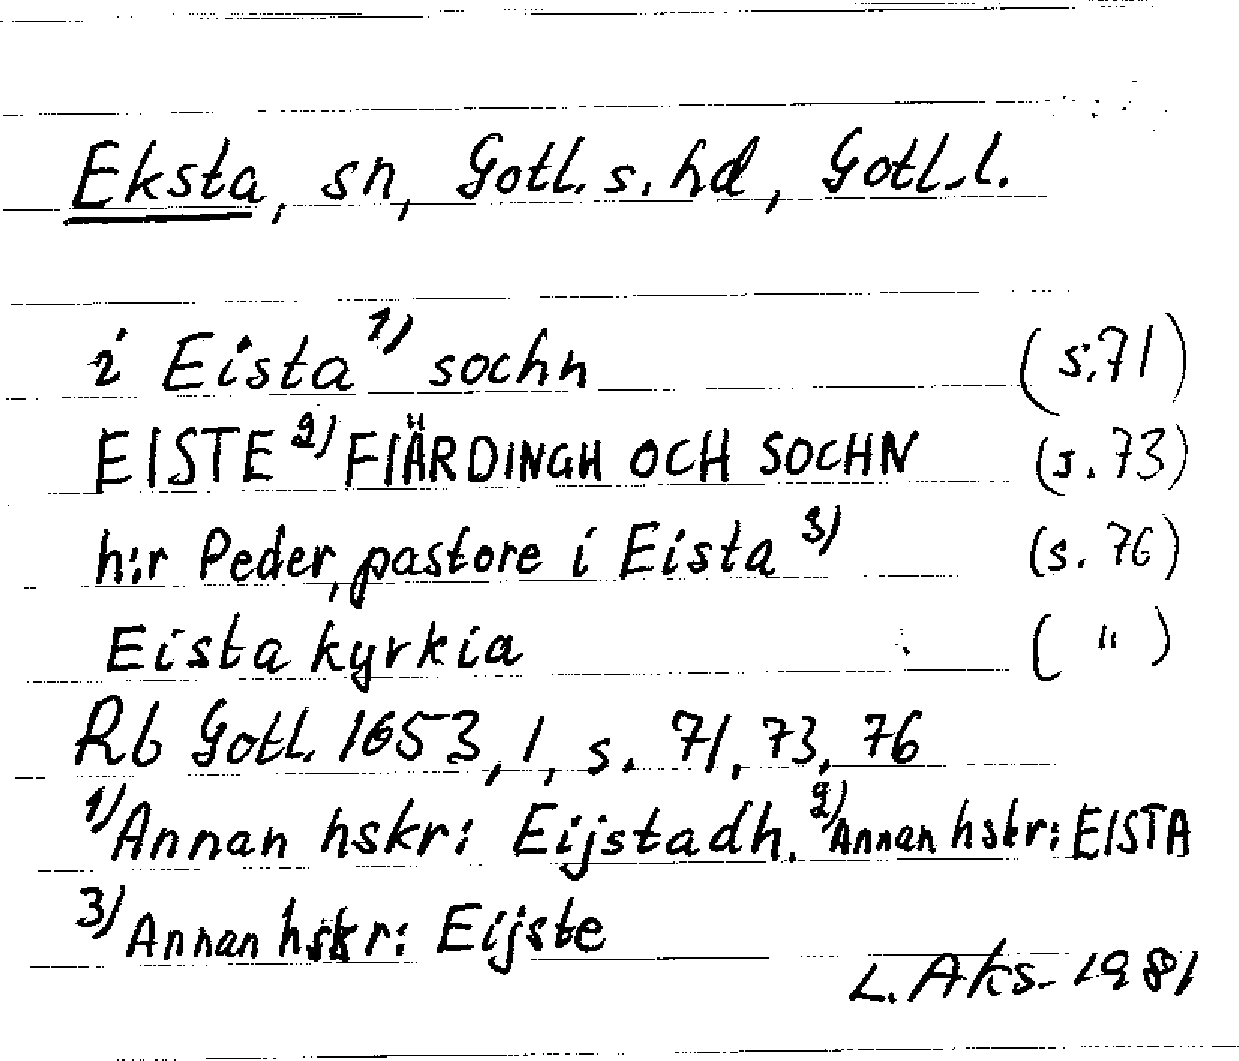 Eksta, sn, Gotl. s. hd, Gotl. l.
i Eista 1) sochn (s. 71)
EISTE 2) FIÄRDINGH OCH SOCHN (s. 73)
h:r Peder, pastore i Eista 3) (s. 76)
Eista kyrkia ( " )
Rb Gotl. 1653, 1, s. 71, 73, 76
1) Annan hskr: Eijstadh. 2) Annan hskr: EISTA
3) Annan hskr: Eijste
L. Aks. 1981